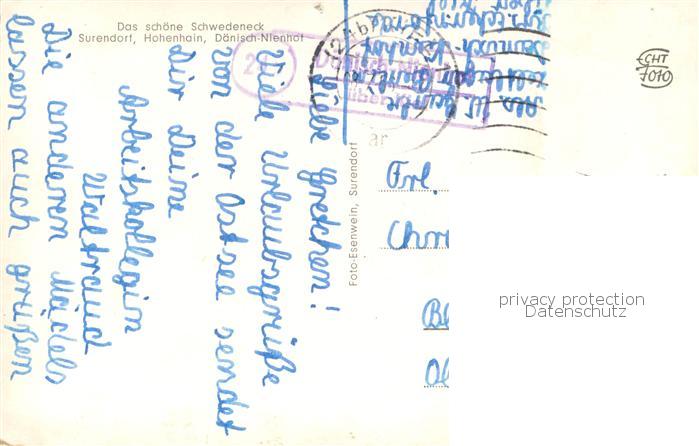 Das schöne Schwedeneck
Surendorf, Hohenhain, Dänisch-Nienhof
Liebe Gretchen!
Viele Urlaubsgrüße
von der Ostsee sendet
Dir Deine
Arbeitskollegin
Waltraud
Die anderen Mädels
lassen auch grüßen
Foto-Esenwein, Surendorf
24b
Dänisch-Nien
über
ECHT
FOTO
Frl.
Chr
privacy protection
Datenschutz